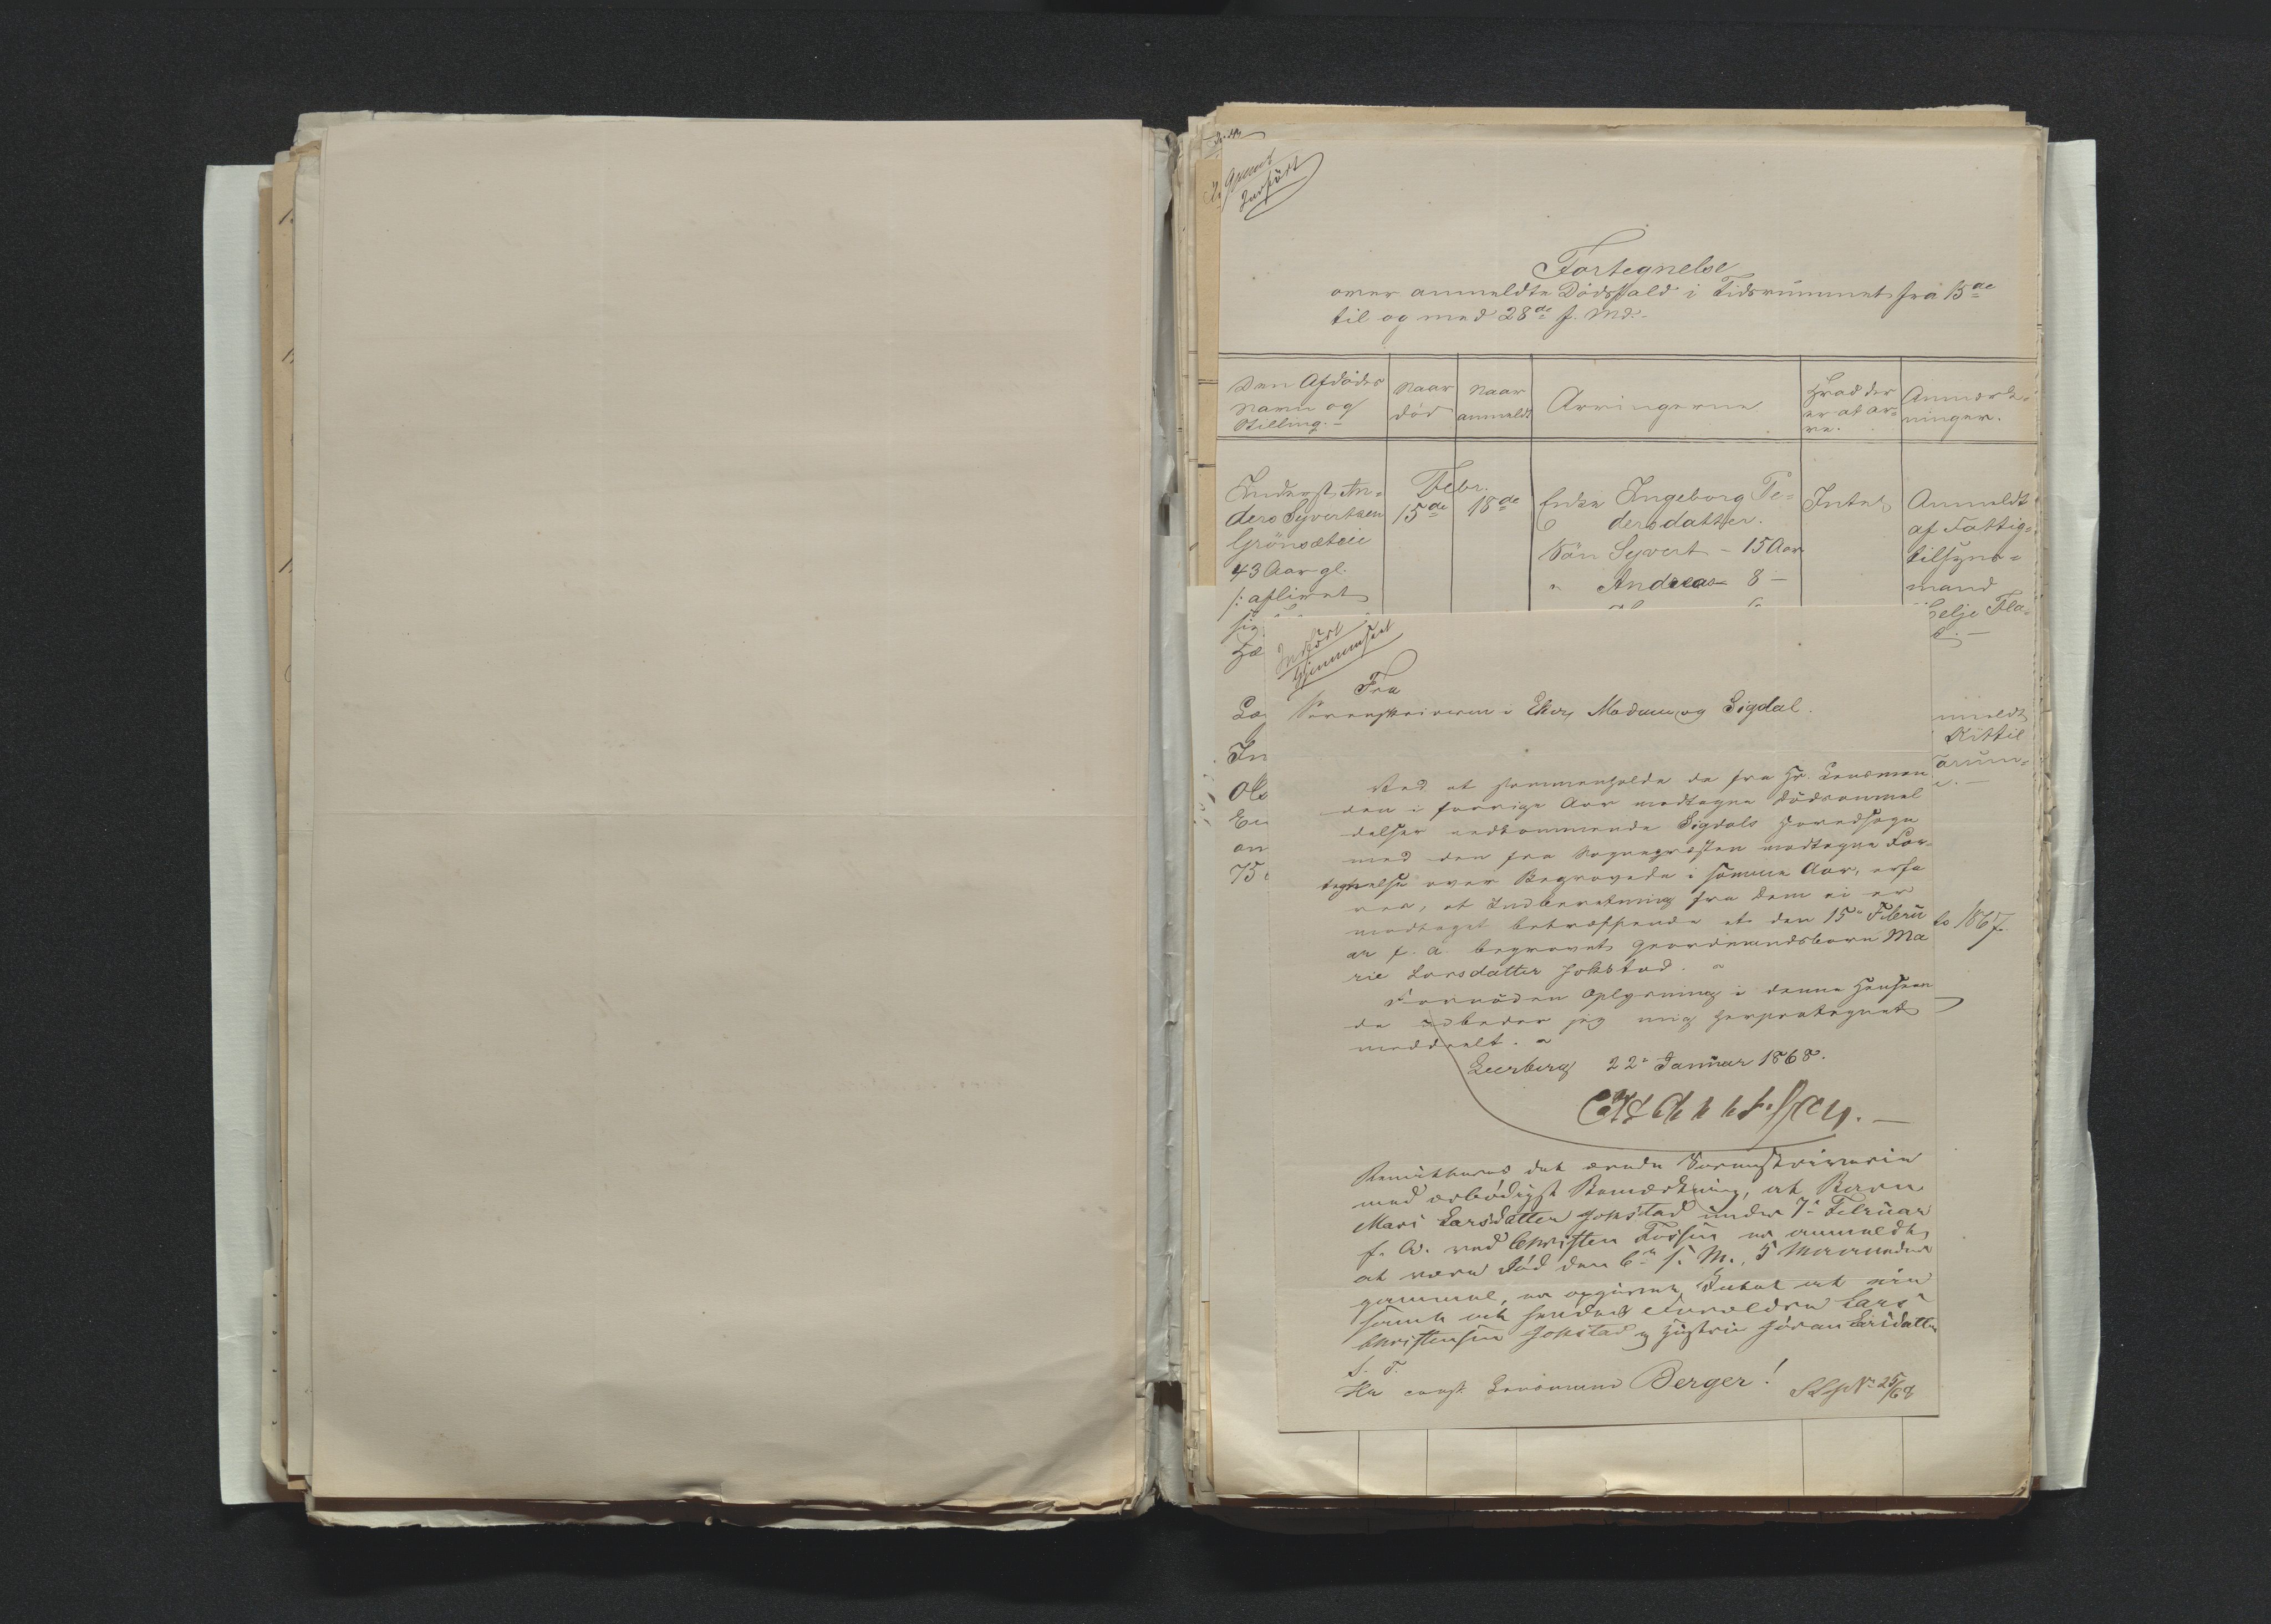 Indført
Fortegnelse
over anmeldte Dødsfald i Tidsrummet fra 15de
til og med 28de f. Md.
Den Afdødes
Navn og
Stilling.
Naar
død
Naar
anmeldt
Arvingerne
Hvad der
er at ar-
ve.
Anmærk-
ninger.
Inderst An-
ders Syvertsen
Grönsæteie
43 Aar gl.
/: aflivet
sig
Febr.
15de
18de
Enke Ingeborg Pe-
dersdatter.
Sön Syvert - 15 Aar
" Andreas 8 -
Intet
Anmeldt
af Fattig-
tilsyns-
mand
Helje Fla-
Indført
Gjennemseet
Fra
Sorenskriveren i Eker, Modum og Sigdal.
Ved at sammenholde de fra Hr. Lensman
den i forrige Aar modtagne Dødsanmel
delser vedkommende Sigdals Hovedsogn
med den fra Sognepræsten modtagne For-
tegnelse over Begravede i samme Aar, erfa
res, at Indberetning fra Dem ei er
modtaget betræffende et den 15de Febru
ar f. A. begravet Gaardmandsbarn Ma
rie Larsdatter Jokstad.
Fornøden Oplysning i denne Henseen
de udbeder jeg mig herpaategnet
meddeelt.
Leerberg 22de Januar 1868.
Remitteres det ærede Sorenskriverie
med ærbødigst Bemærkning, at Barn
Mari Larsdatter Jokstad under 7de Februar
f. A. ved Christen Fossen er anmeldt
at være død den 6te s. M., 5 Maaneder
gammel, er opgivet Intet at eie
samt at hendes Forældre Lars
Christensen Jokstad og Hustru Jöran Larsdatter
S. T.
Hr const. Lensmand Berger!
to 1867.
nmeldt
Kittil
In
Ols
75